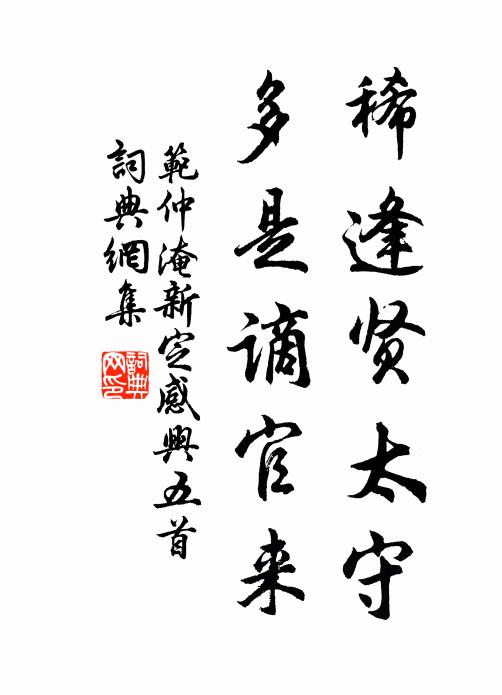 稀逢贤太守
多是谪官来
範仲淹新定感興五首
詞典網集
詞典
网印